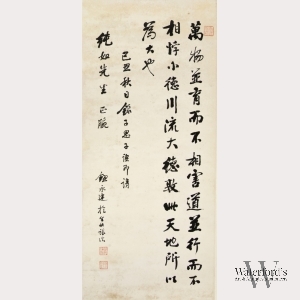 萬物並育而不相害道並行而不
相悖小德川流大德敦此天地所以
為大也
秋日錄子思子語即請
先生正
永建於
Waterford's